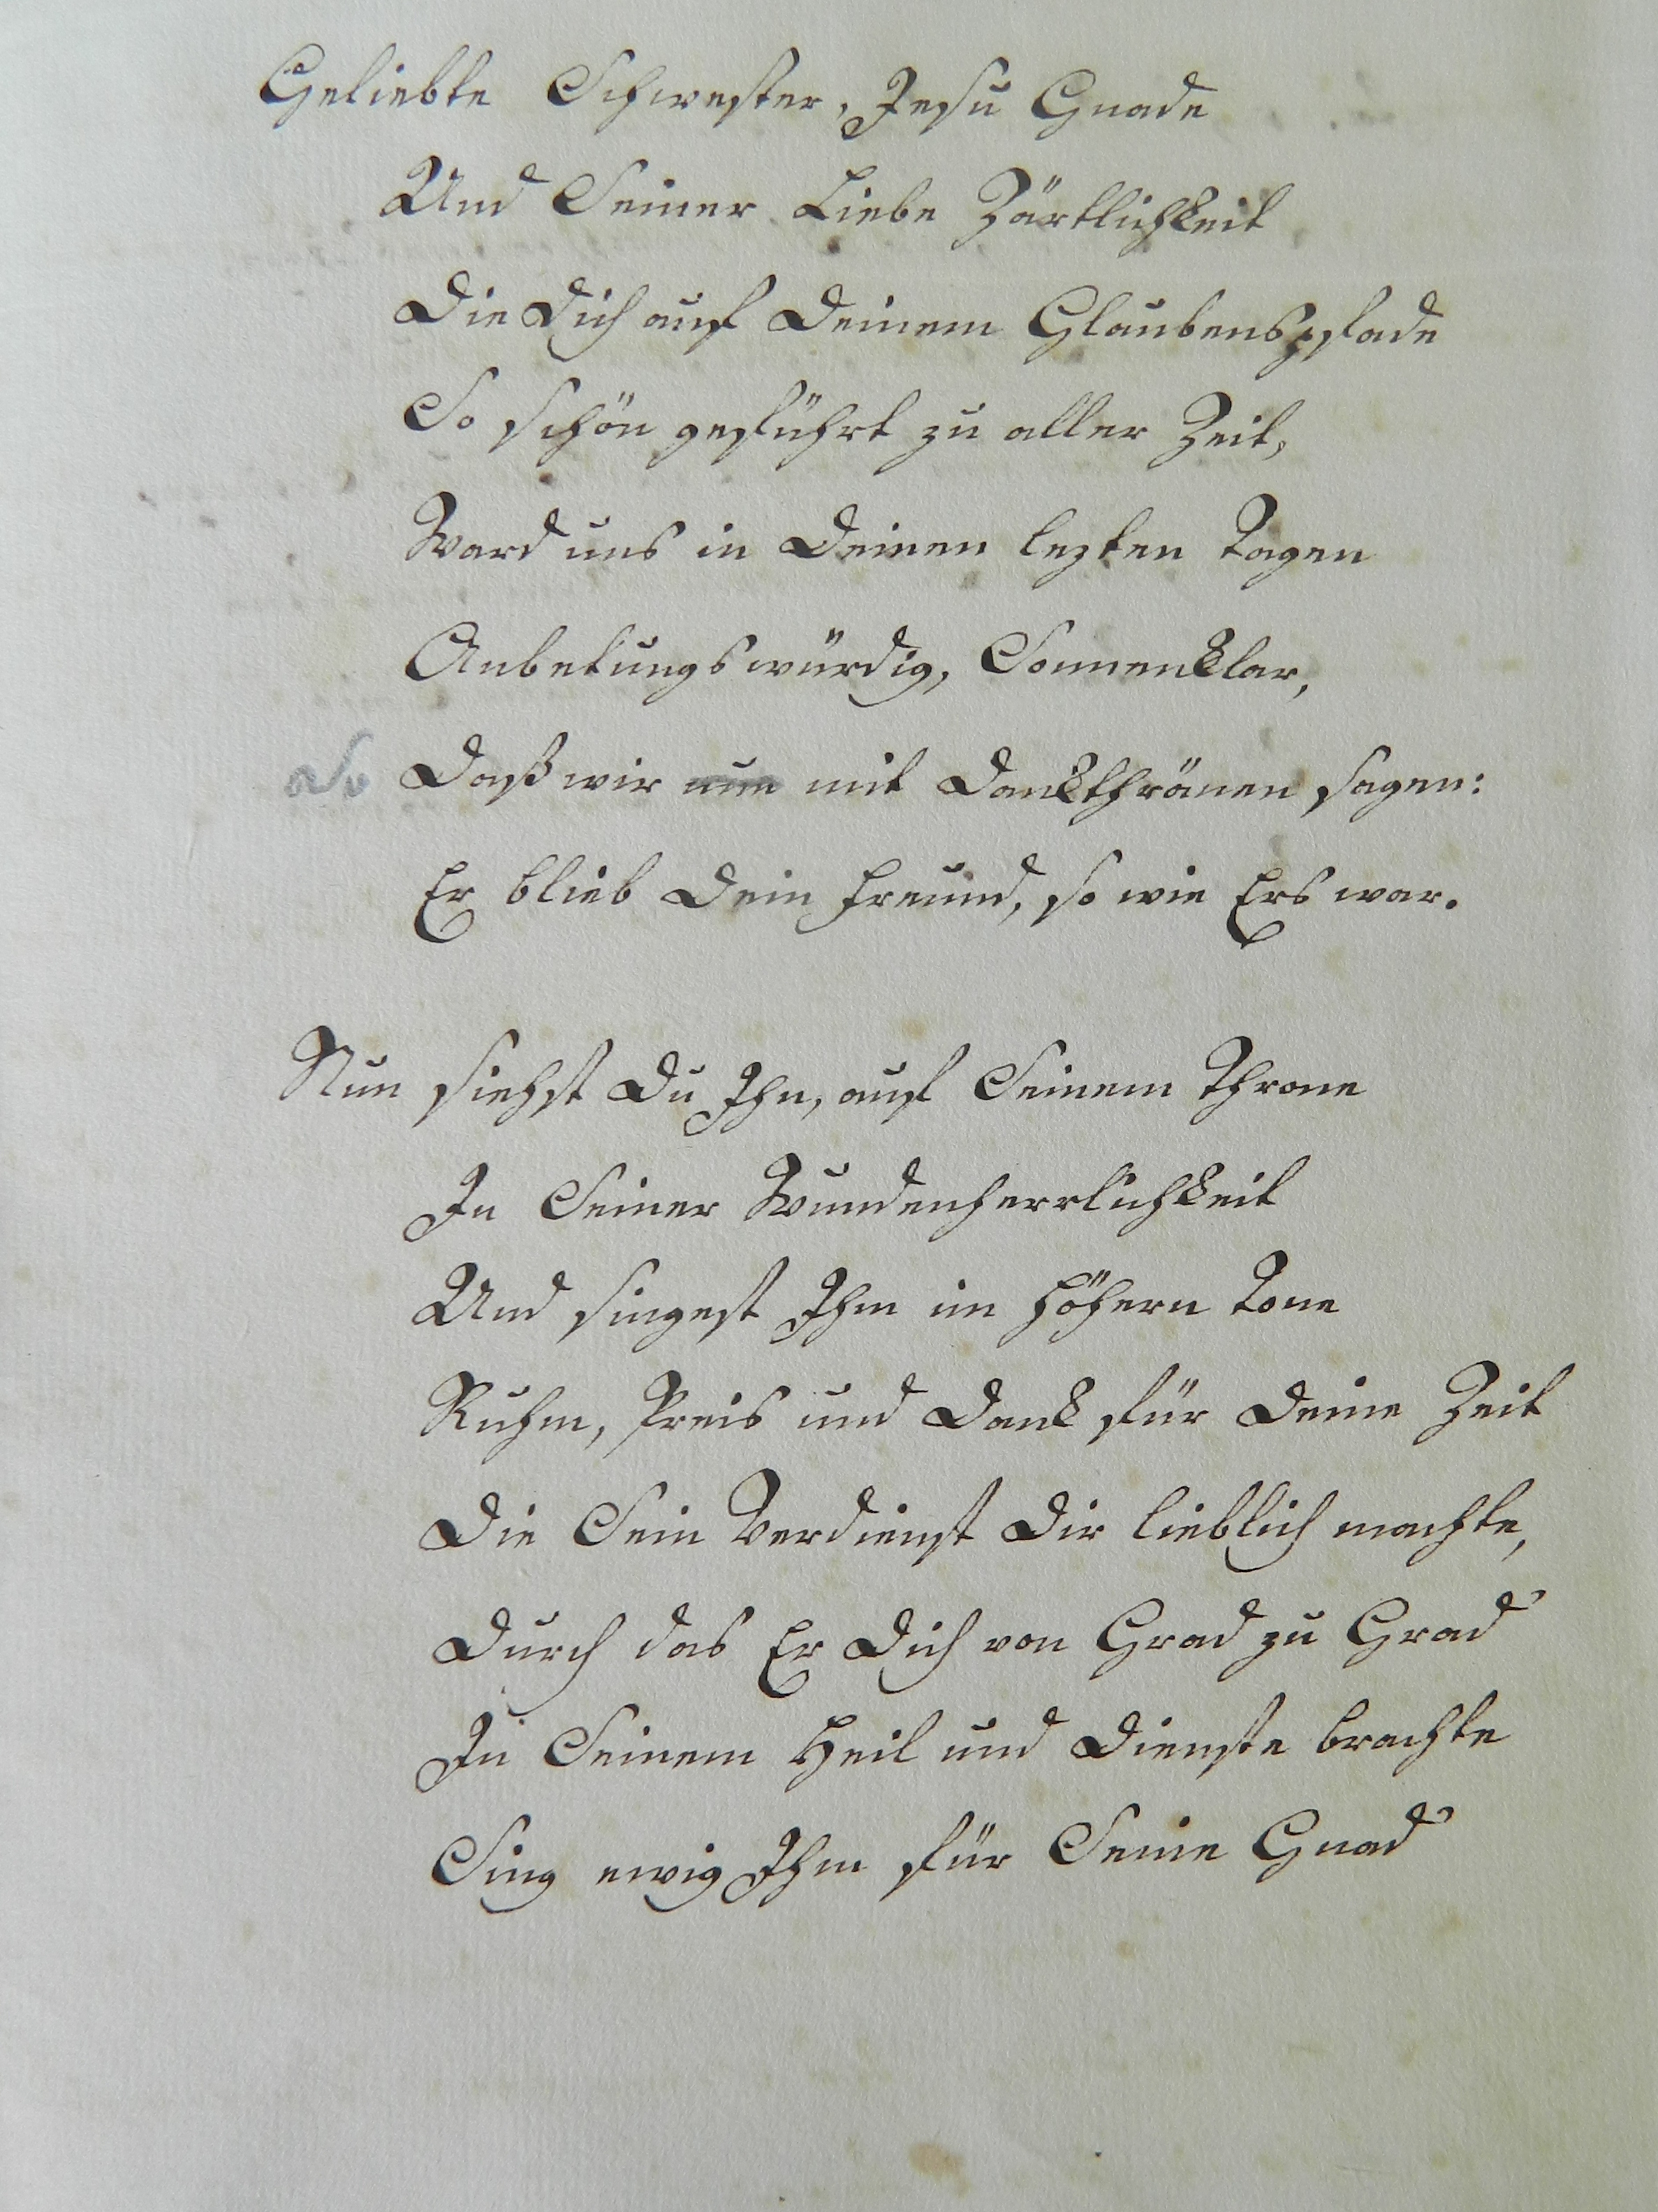 Geliebte Schwester, Jesu Gnade
Und Seiner Liebe Zärtlichkeit
Die Dich auf Deinem Glaubenspfade
So schön geführt zu aller Zeit,
Ward uns in Deinen lezten Tagen
Anbetungswürdig, Sonnenklar,
So Daß wir nun mit Dankthränen sagen:
Er blieb Dein Freund, so wie Ers war.
Nun siehst Du Ihn, auf Seinem Throne
In Seiner Wundenherrlichkeit
Und singest Ihm im höhern Tone
Ruhm, Preis und Dank für Deine Zeit
Die Sein Verdienst Dir lieblich machte,
Durch das Er Dich von Grad zu Grad
Zu Seinem Heil und Dienste brachte
Sing ewig Ihm für Seine Gnad